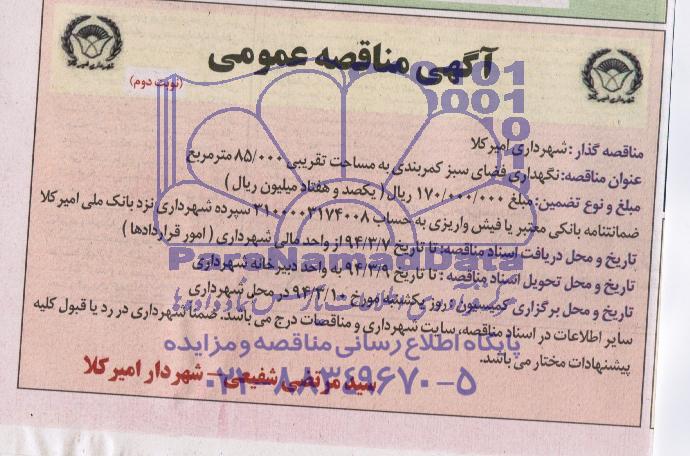 آگهی مناقصه عمومی
(نوبت دوم)
مناقصه گذار: شهرداری امیرکلا
عنوان مناقصه: نگهداری فضای سبز کمربندی به مساحت تقریبی ۸۵/۰۰۰ مترمربع
مبلغ و نوع تضمین: مبلغ ۱۷۰/۰۰۰/۰۰۰ ریال ( یکصد و هفتاد میلیون ریال )
ضمانتنامه بانکی معتبر یا فیش واریزی به حساب ۳۱۰۰۰۰۳۱۷۴۰۰۸ سپرده شهرداری نزد بانک ملی امیرکلا
تاریخ و محل دریافت اسناد مناقصه: تا تاریخ ۹۴/۳/۷ از واحد مالی شهرداری ( امور قراردادها )
تاریخ و محل تحویل اسناد مناقصه : تا تاریخ ۹۴/۳/۹ به واحد دبیرخانه شهرداری
تاریخ و محل برگزاری کمیسیون: روز یکشنبه مورخ ۹۴/۳/۱۰ در محل شهرداری
سایر اطلاعات در اسناد مناقصه، سایت شهرداری و مناقصات درج می باشد. ضمنا شهرداری در رد یا قبول کلیه
پیشنهادات مختار می باشد.
سید مرتضی شفیعی – شهردار امیرکلا
ParaNamadData
پایگاه اطلاع رسانی مناقصه و مزایده
۰۲۱-۸۸۳۴۹۶۷۰-۵